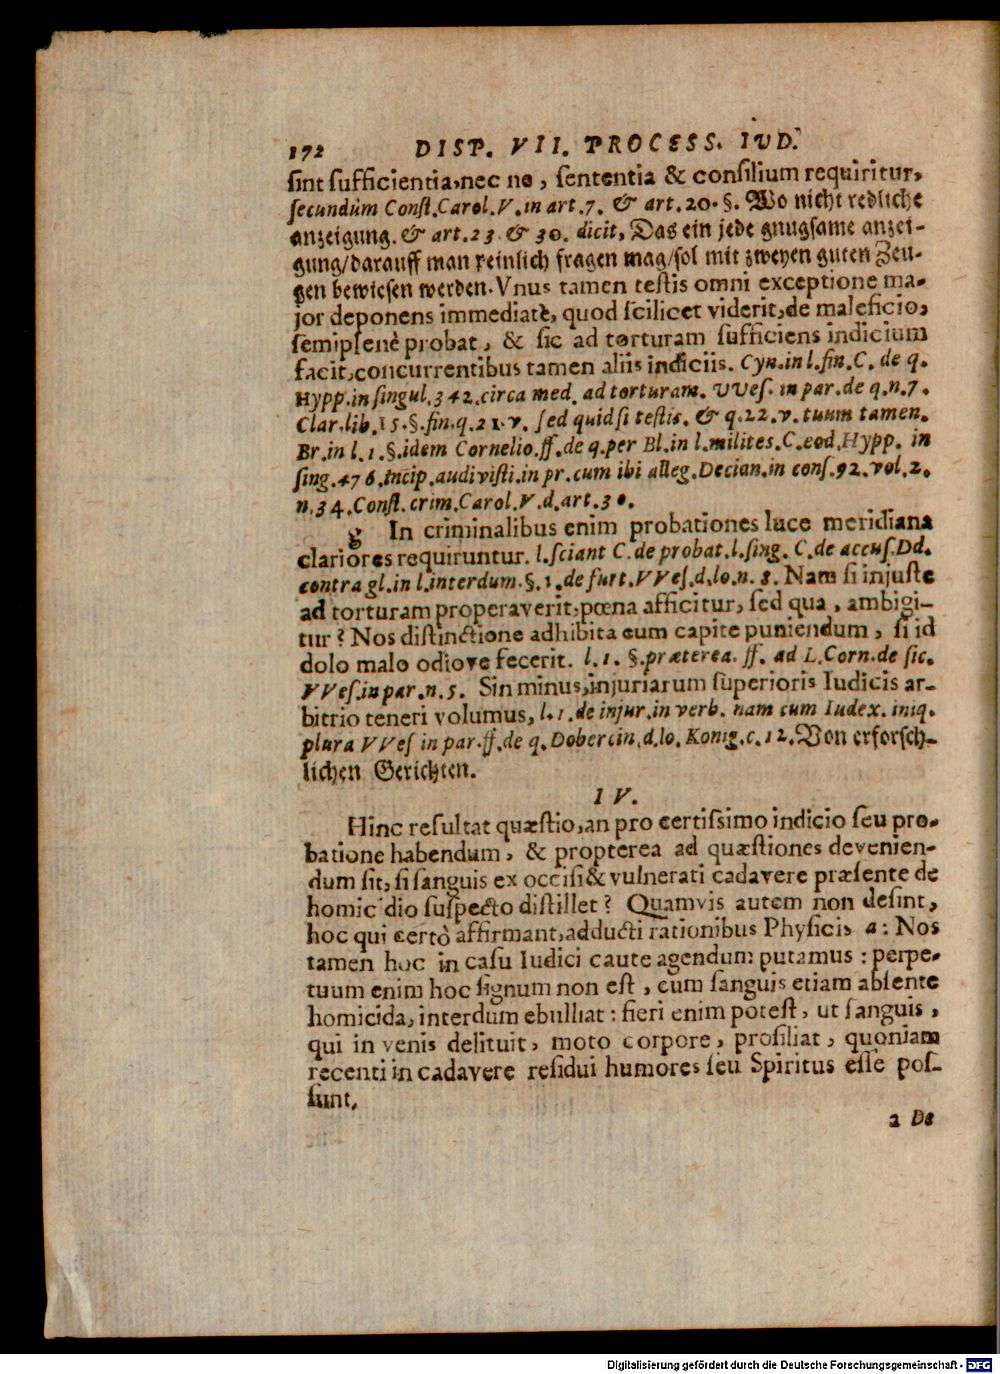 172 DISP. VII. PROCESS. IVD.
ſint ſufficientia, nec ne, ſententia & conſilium requiritur,
ſecundùm Conſt. Carol. V. in art. 7. & art. 20. §. Wo nicht redliche
anzeigung. & art. 23. & 30. dicit, Das ein jede gnugſame anzei-
gung/darauff man peinlich fragen mag/ſol mit zweyen guten Zeu-
gen bewieſen werden. Vnus tamen teſtis omni exceptione ma-
jor deponens immediatè, quod ſcilicet viderit, de maleficio,
ſemiplenè probat, & ſic ad torturam ſufficiens indicium
facit, concurrentibus tamen aliis indiciis. Cyn. in l. fin. C. de q.
Hypp. in ſingul. 342. circa med. ad torturam. VVeſ. in par. de q. n. 7.
Clar. lib. 15. §. fin. q. 21. v. ſed quid ſi teſtis. & q. 22. v. tuum tamen.
Br. in l. 1. §. idem Cornelio. ff. de q. per Bl. in l. milites. C. eod. Hypp. in
ſing. 476. incip. audiviſti. in pr. cum ibi alleg. Decian. in conſ. 92. vol. 2.
n. 34. Conſt. crim. Carol. V. d. art. 30.
g In criminalibus enim probationes luce meridiana
clariores requiruntur. l. ſciant C. de probat. l. ſing. C. de accuſ. Dd.
contra gl. in l. interdum. §. 1. de furt. VVeſ. d. lo. n. 8. Nam ſi injuſte
ad torturam properaverit, pœna afficitur, ſed qua, ambigi-
tur? Nos diſtinctione adhibita eum capite puniendum, ſi id
dolo malo odiove fecerit. l. 1. §. præterea. ff. ad L. Corn. de ſic.
VVeſ. in par. n. 5. Sin minus, injuriarum ſuperioris Iudicis ar-
bitrio teneri volumus, l. 1. de injur. in verb. nam cum Iudex. iniq.
plura VVeſ in par. ff. de q. Dobercin. d. lo. Konig. c. 12. Von erforſch-
lichen Gerichten.
IV.
Hinc reſultat quæſtio, an pro certiſsimo indicio ſeu pro-
batione habendum, & propterea ad quæſtiones devenien-
dum ſit, ſi ſanguis ex occiſi & vulnerati cadavere præſente de
homicidio ſuſpecto diſtillet? Quamvis autem non deſint,
hoc qui certò affirmant, adducti rationibus Phyſicis a: Nos
tamen hoc in caſu Iudici caute agendum putamus: perpe-
tuum enim hoc ſignum non eſt, cum ſanguis etiam abſente
homicida, interdum ebulliat: fieri enim poteſt, ut ſanguis,
qui in venis delituit, moto corpore, proſiliat, quoniam
recenti in cadavere reſidui humores ſeu Spiritus eſſe poſ-
ſunt.
a De
Digitalisierung gefördert durch die Deutsche Forschungsgemeinschaft - DFG